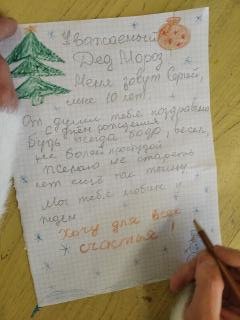 Уважаемый
Дед Мороз
Меня зовут Сергей,
мне 10 лет.
От души тебя поздравляю
С днём рождения
Будь всегда бодр, весел,
не болей простудой
Желаю не стареть
лет ещё так тыщу
Мы тебя любим и
ждём
Хочу для всех
счастья!